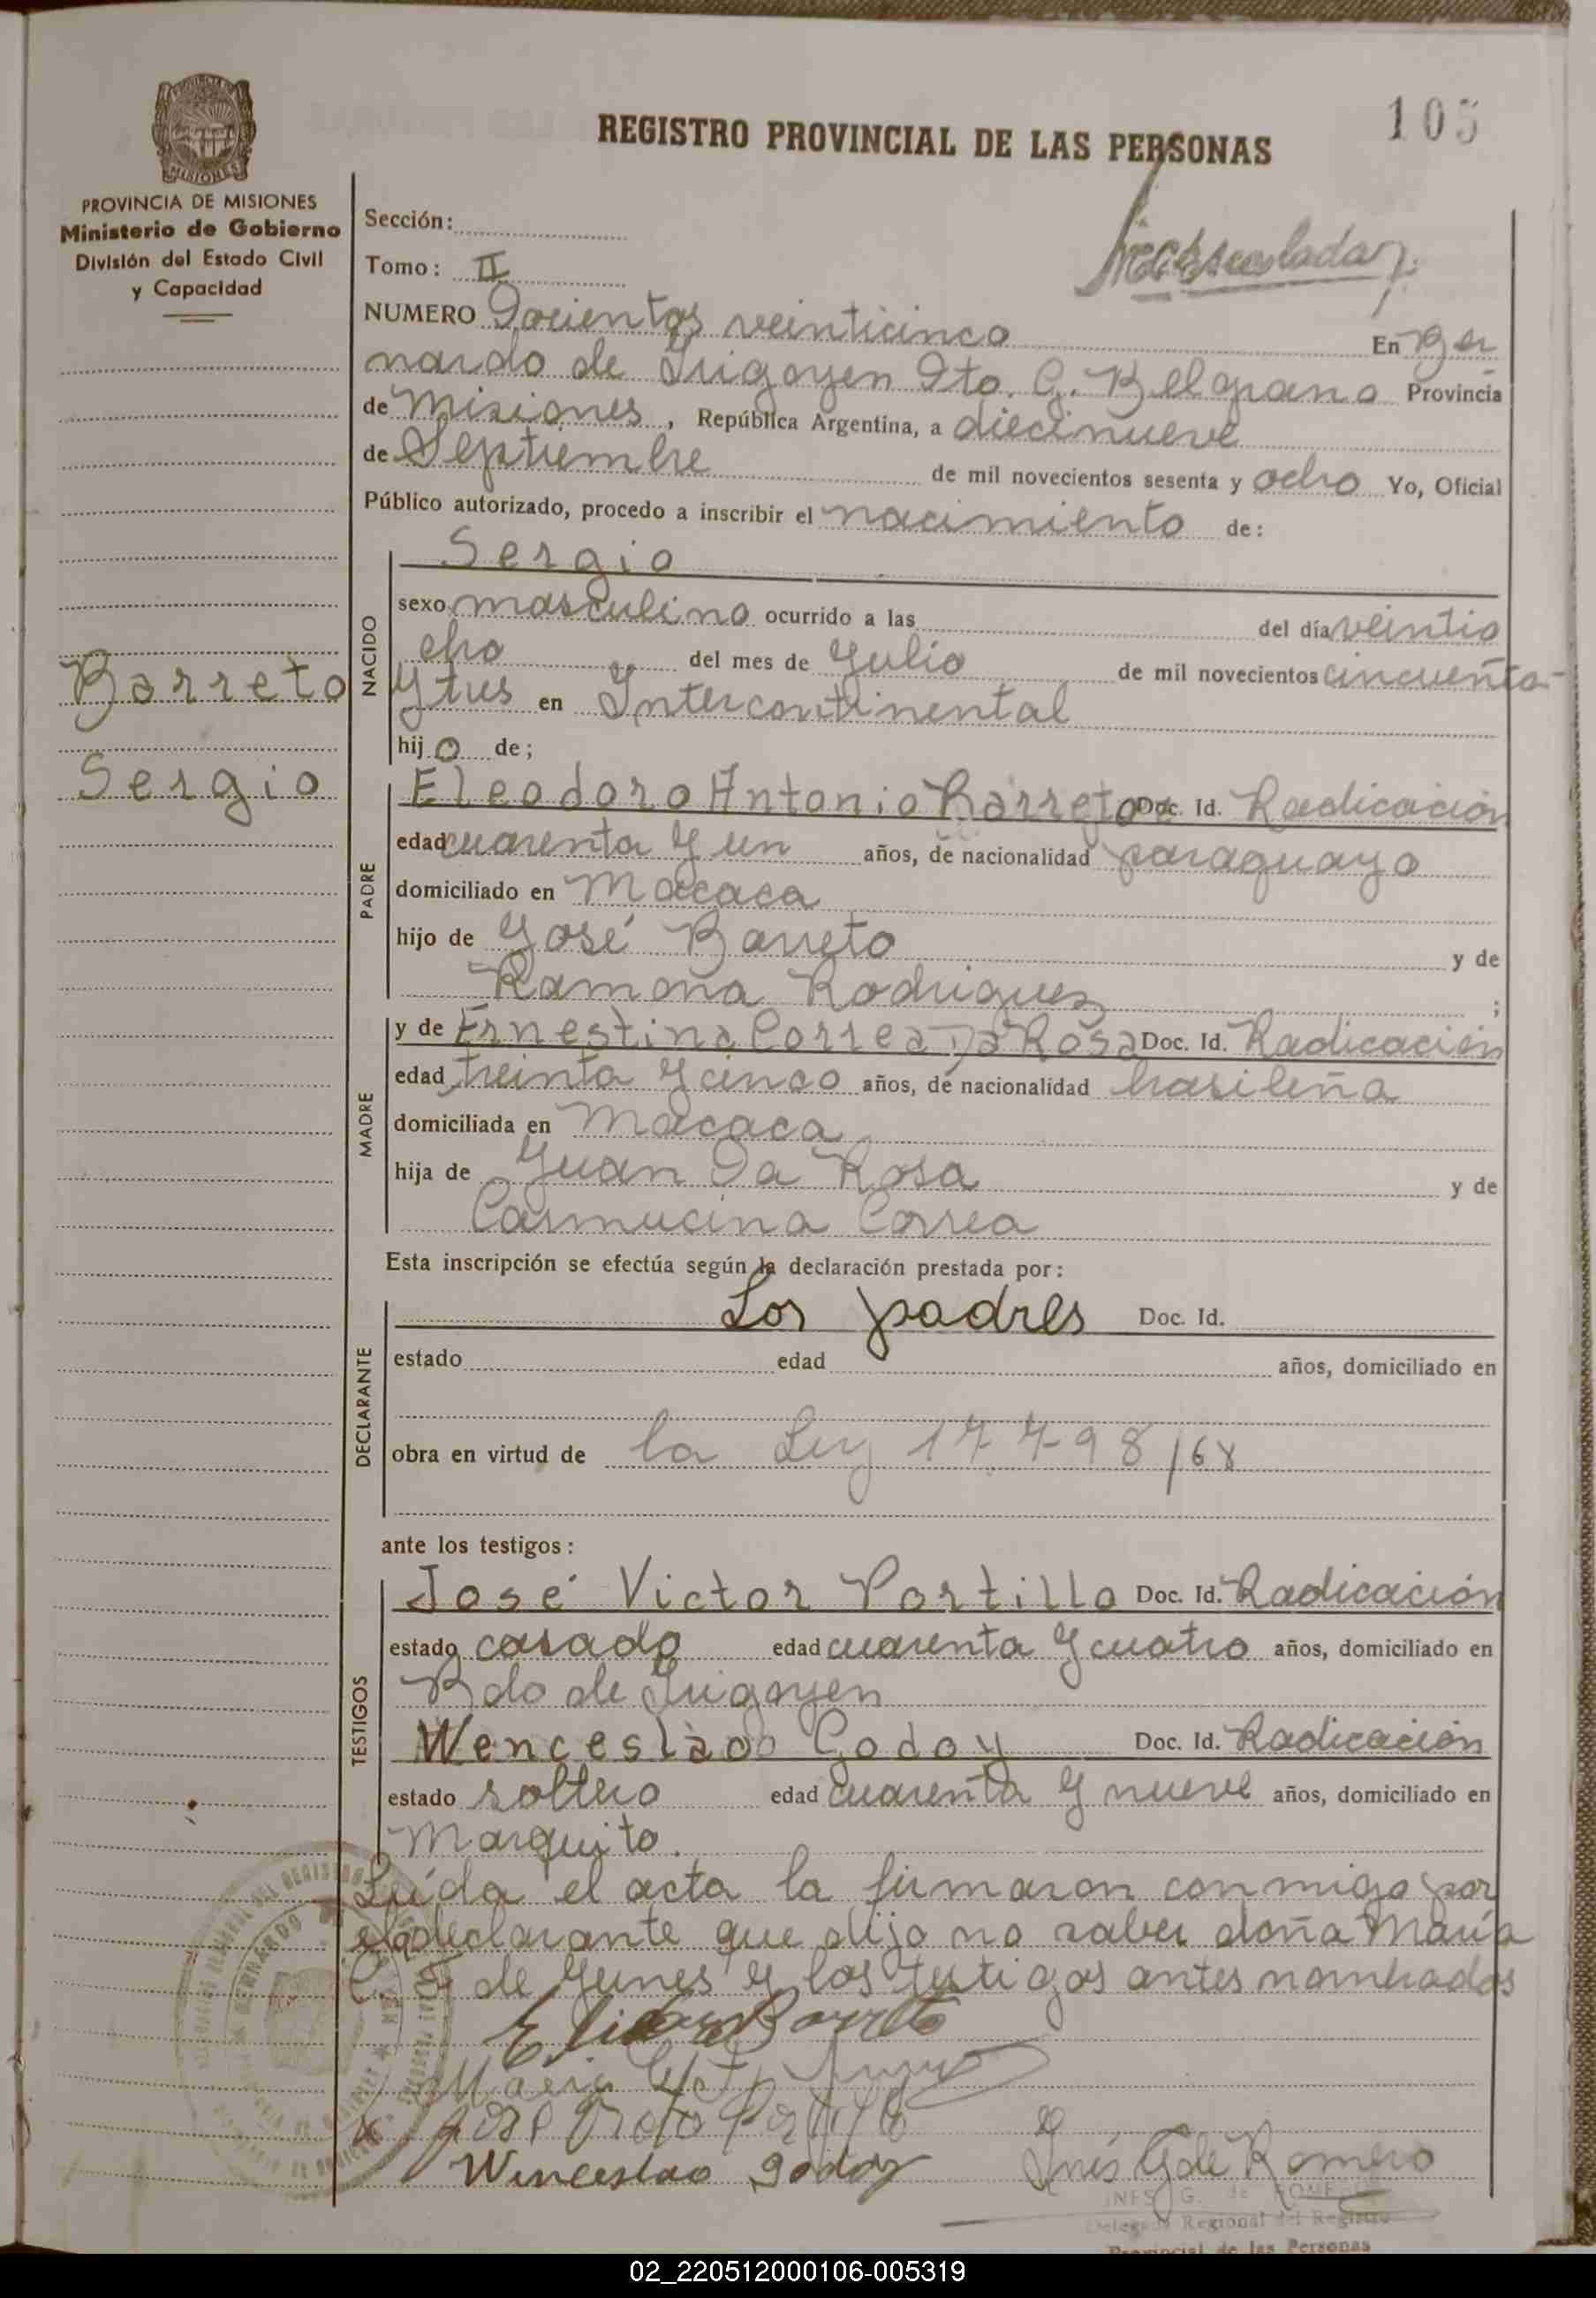 105
REGISTRO PROVINCIAL DE LAS PERSONAS
MISIONES
PROVINCIA DE MISIONES
Ministerio de Gobierno
División del Estado Civil
y Capacidad
Sección:
Tomo: II
NUMERO Docientos veinticinco En Ber
nardo de Irigoyen Dto. G. Belgrano Provincia
de Misiones, República Argentina, a diecinueve
de Septiembre de mil novecientos sesenta y ocho Yo, Oficial
Público autorizado, procedo a inscribir el nacimiento de:
Sergio
NACIDO
sexo masculino ocurrido a las del día veintio
cho del mes de Julio de mil novecientos cincuenta
y tres en Intercontinental
hijo de;
Barreto
Sergio
PADRE
Eleodoro Antonio Barreto Doc. Id. Radicación
edad cuarenta y un años, de nacionalidad paraguayo
domiciliado en Macaca
hijo de José Barreto y de
Ramona Rodriguez ;
MADRE
y de Ernestina Correa Da Rosa Doc. Id. Radicación
edad treinta y cinco años, de nacionalidad brasileña
domiciliada en Macaca
hija de Juan Da Rosa y de
Carmucina Correa
Esta inscripción se efectúa según la declaración prestada por:
DECLARANTE
Los padres Doc. Id.
estado edad años, domiciliado en
obra en virtud de la Ley 17.798/68
ante los testigos:
TESTIGOS
José Victor Portillo Doc. Id. Radicación
estado casado edad cuarenta y cuatro años, domiciliado en
Bdo de Irigoyen
Wenceslao Godoy Doc. Id. Radicación
estado soltero edad cuarenta y nueve años, domiciliado en
Marquito.
Leída el acta la firmaron conmigo por
el declarante que dijo no saber doña María
C. de Yunes y los testigos antes nombrados
Barreto
María
José Portillo
Winceslao Godoy
Inés G de Romero
INES G. de ROMERO
Delegada Regional del Registro
Provincial de las Personas
02_220512000106-005319